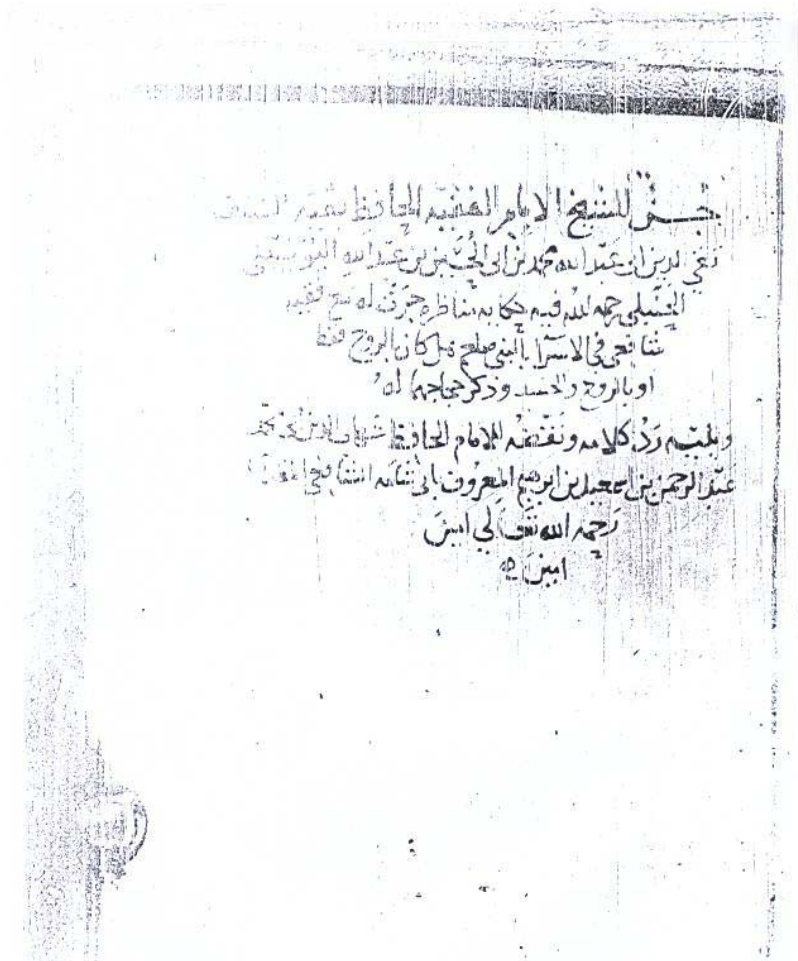 جزء للشيخ الامام الفقيه الحافظ بقية السلف
تقي الدين ابي عبد الله محمد بن ابي الحسين بن عبد الله اليونيني
الحنبلي رحمه الله فيه حكاية مناظرة جرت له مع فقيه
شافعي في الاسرا بالنبي صلعم هل كان بالروح فقط
او بالروح والجسد وذكر حجاجهما له
ويليه رد كلامه ونقضه للامام الحافظ شهاب الدين
عبد الرحمن بن اسمعيل بن ابرهيم المعروف بابي شامة الشافعي
رحمه الله تعالى امين
امين